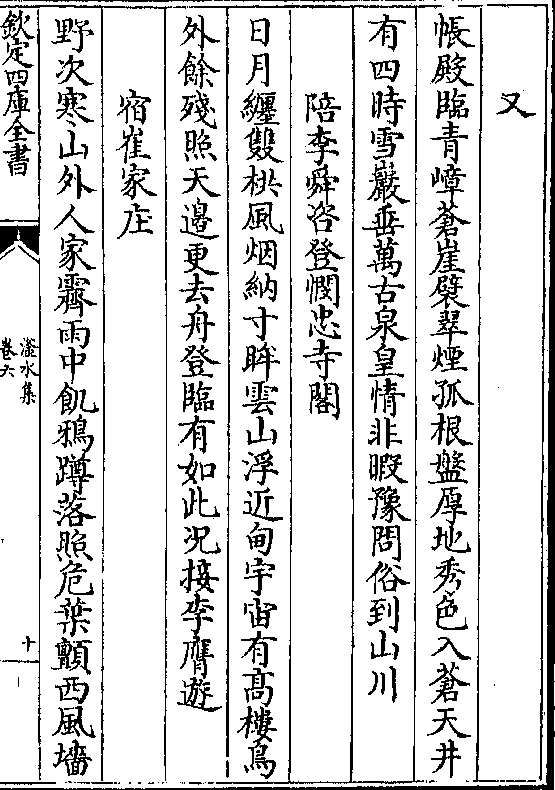 又
帳殿臨青嶂蒼崖襞翠煙孤根盤厚地秀色入蒼天井
有四時雪巖垂萬古泉皇情非暇豫問俗到山川
陪李舜咨登憫忠寺閣
日月纏雙栱風烟納寸眸雲山浮近甸宇宙有髙樓鳥
外餘殘照天邉更去舟登臨有如此况接李膺遊
宿崔家庄
野次寒山外人家霽雨中飢鴉蹲落照危葉顫西風墻
欽定四庫全書
滏水集
卷六
十